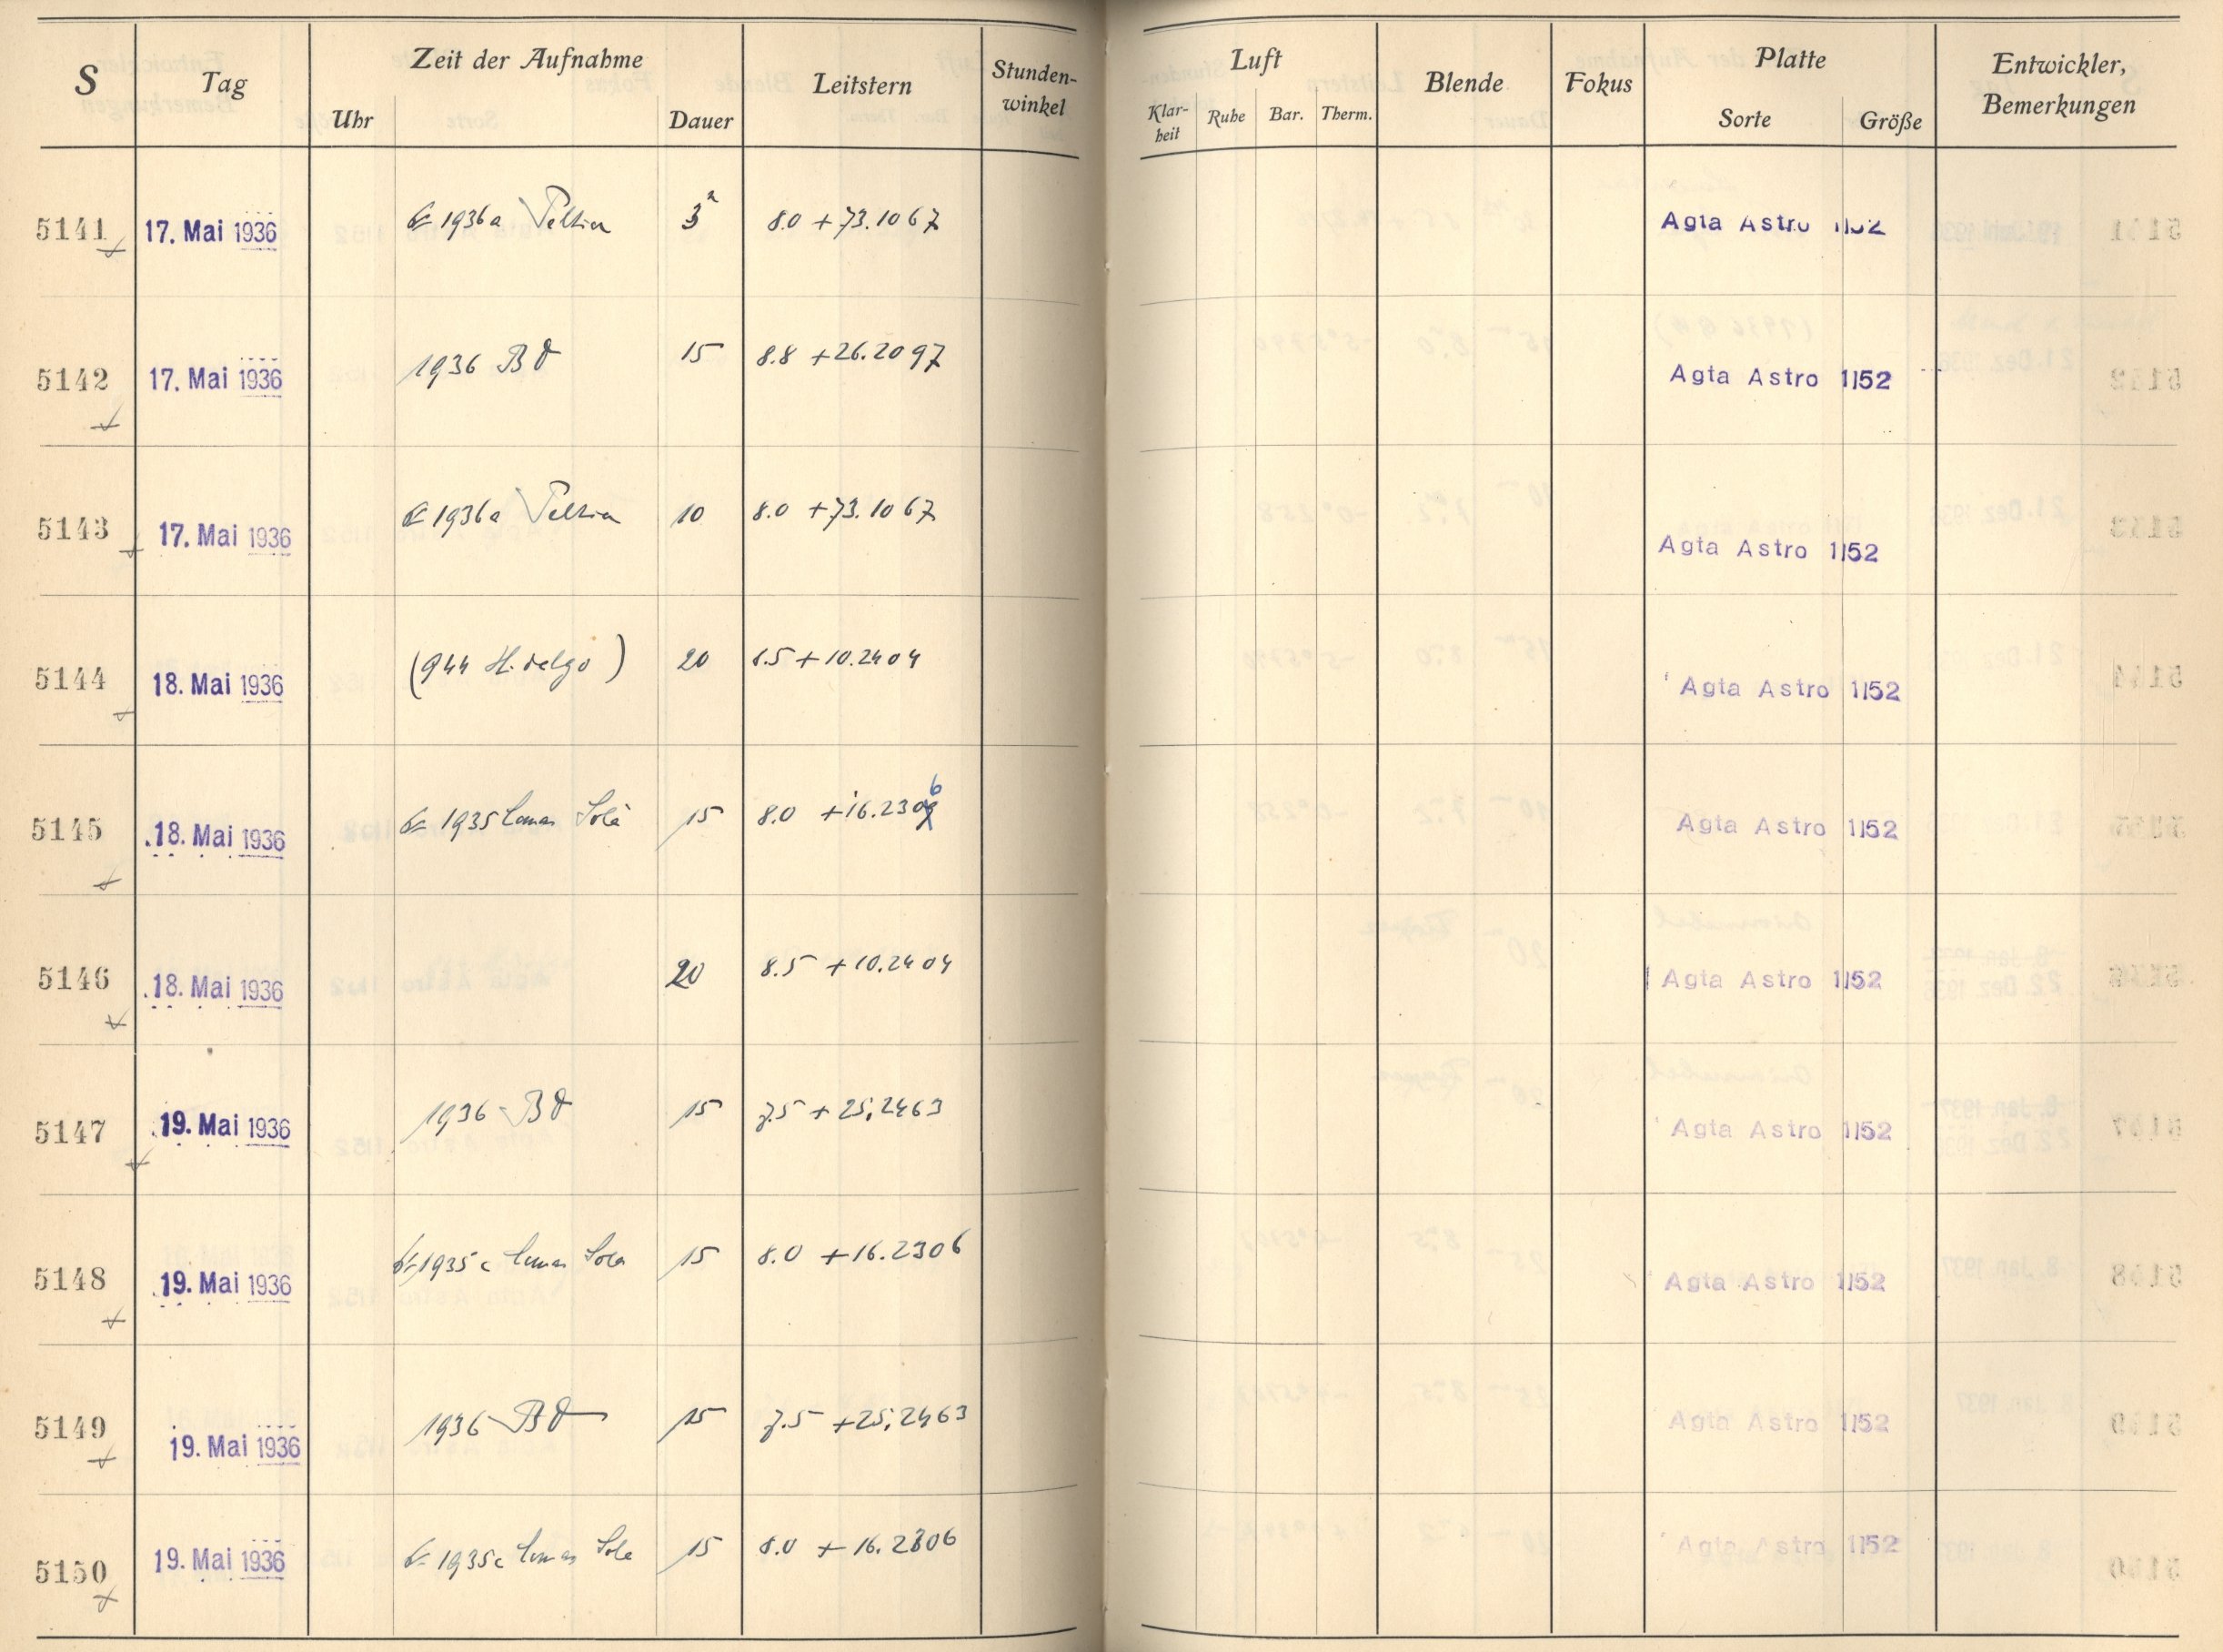 S Tag Zeit der Aufnahme Leitstern Stunden-winkel Luft Blende Fokus Platte Entwickler, Bemerkungen
Uhr Dauer Klar-heit Ruhe Bar. Therm. Sorte Größe
5141 17. Mai 1936 1936a Peltier 3 8.0 +73.1067 Agfa Astro 1152
5142 17. Mai 1936 1936 15 8.8 +26.2097 Agfa Astro 1152
5143 17. Mai 1936 1936a Peltier 10 8.0 +73.1067 Agfa Astro 1152
5144 18. Mai 1936 (944 Hidalgo) 20 8.5 +10.2404 Agfa Astro 1152
5145 18. Mai 1936 1935 Comas Solà 15 8.0 +16.2306 Agfa Astro 1152
5146 18. Mai 1936 20 8.5 +10.2404 Agfa Astro 1152
5147 19. Mai 1936 1936 15 7.5 +25.2463 Agfa Astro 1152
5148 19. Mai 1936 1935c Comas Sola 15 8.0 +16.2306 Agfa Astro 1152
5149 19. Mai 1936 1936 15 7.5 +25.2463 Agfa Astro 1152
5150 19. Mai 1936 1935c Comas Sola 15 8.0 +16.2306 Agfa Astro 1152